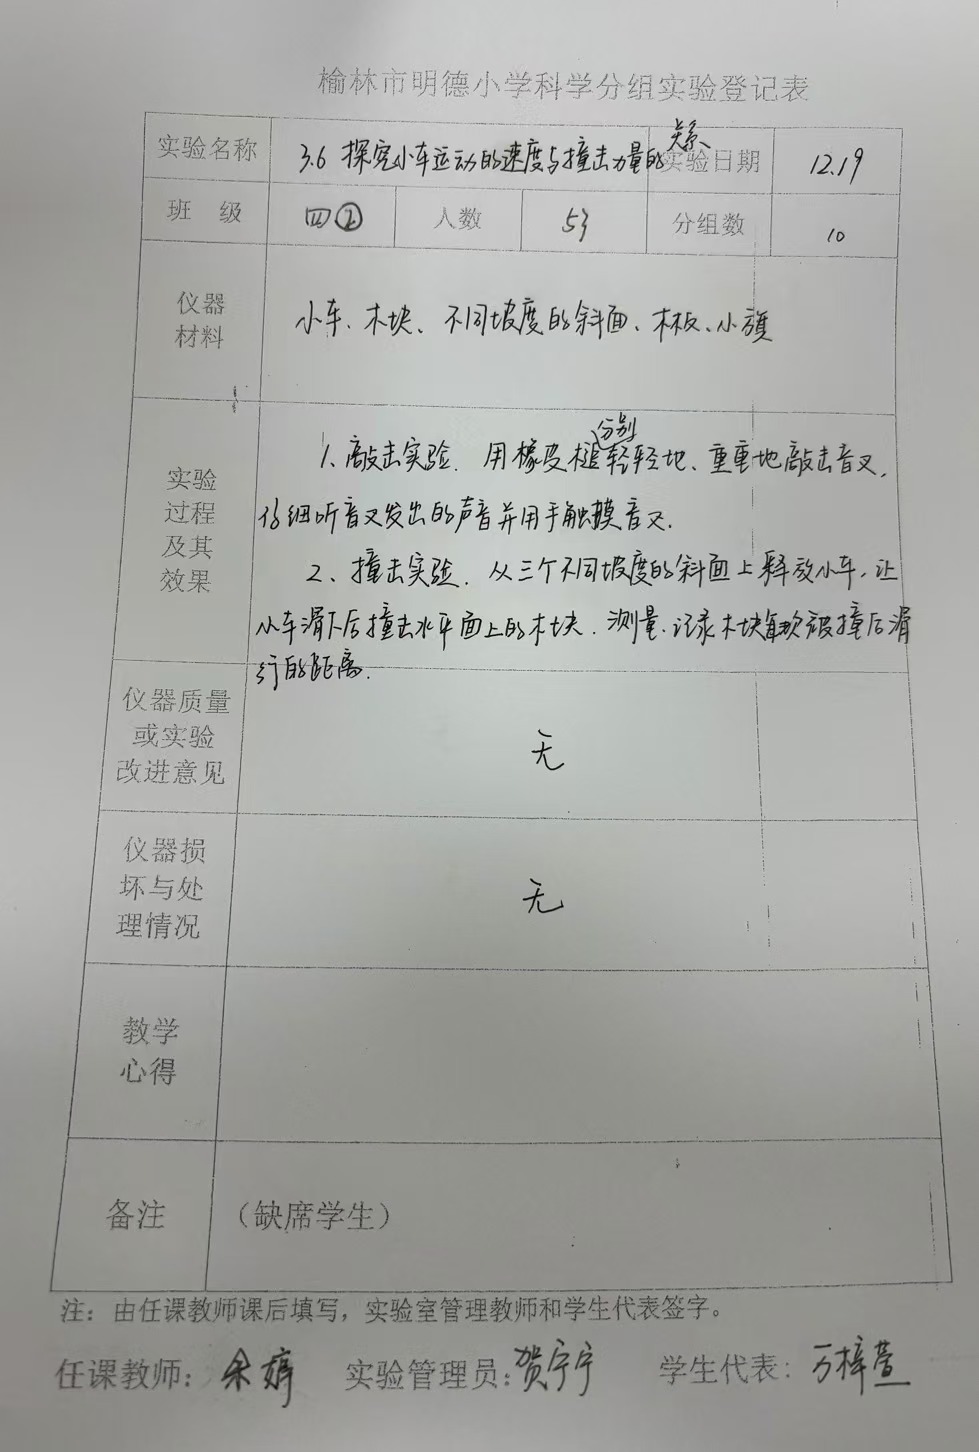 榆林市明德小学科学分组实验登记表
实验名称 3.6 探究小车运动的速度与撞击力量的关系 实验日期 12.19
班 级 四② 人数 53 分组数 10
仪器
材料
小车、木块、不同坡度的斜面、木板、小旗
实验
过程
及其
效果
1、敲击实验. 用橡皮槌分别轻轻地、重重地敲击音叉,
仔细听音叉发出的声音并用手触摸音叉.
2、撞击实验. 从三个不同坡度的斜面上释放小车,让
小车滑下后撞击水平面上的木块.测量、记录木块每次被撞后滑
行的距离.
仪器质量
或实验
改进意见
无
仪器损
坏与处
理情况
无
教学
心得
备注 （缺席学生）
注：由任课教师课后填写，实验室管理教师和学生代表签字。
任课教师：余婷 实验管理员：贺宁宁 学生代表：万梓萱